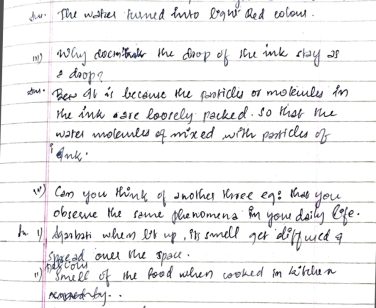 Ans. The water turned into light Red colour.
iii) Why doesn't the drop of the ink stay as
a drop?
Ans. It is because the particles or molecules in
the ink are loosely packed. So that the
water molecules of mixed with particles of
ink.
iv) Can you think of another three egs that you
observe the same phenomena in your daily life.
i) Agarbati when lit up, its smell get diffused &
spread over the space.
ii) Smell of the food when cooked in kitchen